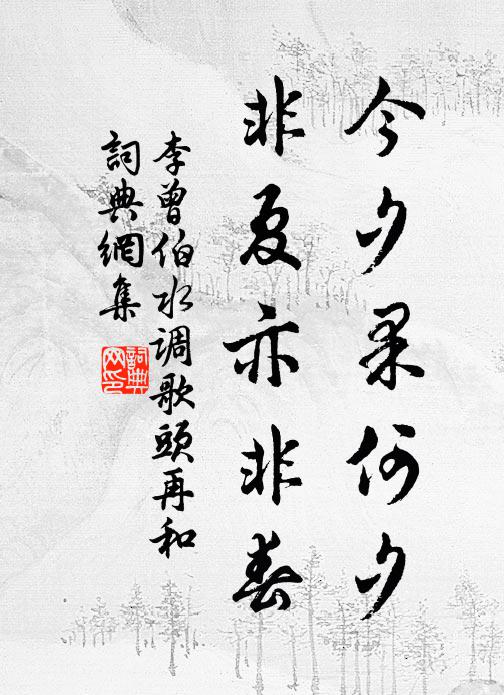 今夕果何夕
非夏亦非春
李曾伯水调歌頭再和
詞典網集
詞典網印